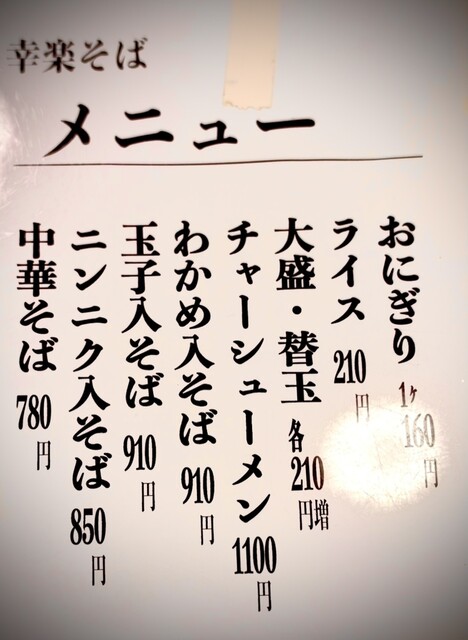 幸楽そば
メニュー
おにぎり 1ヶ 160円
ライス 210円
大盛・替玉 各210円増
チャーシューメン 1100円
わかめ入そば 910円
玉子入そば 910円
ニンニク入そば 850円
中華そば 780円